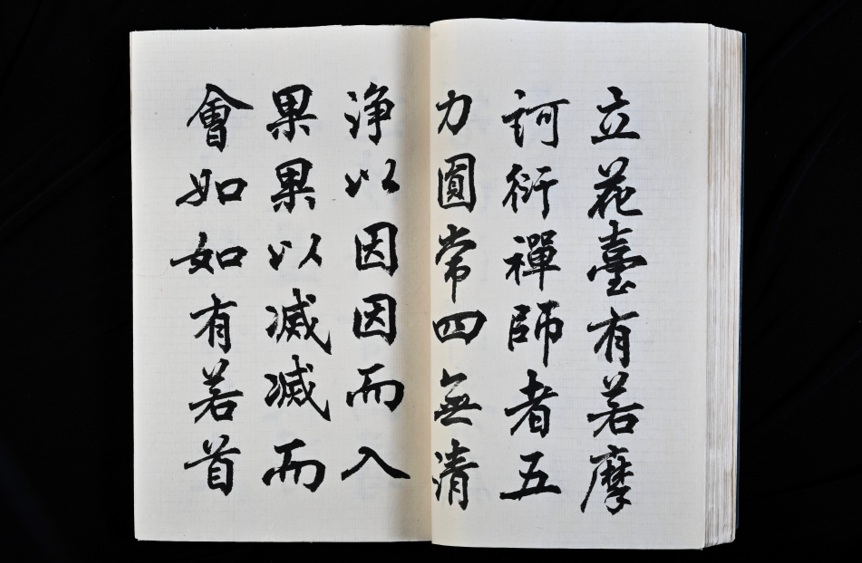 立花臺有若摩
訶衍禪師者五
力圓常四無清
淨以因因而入
果果以滅滅而
會如如有若首